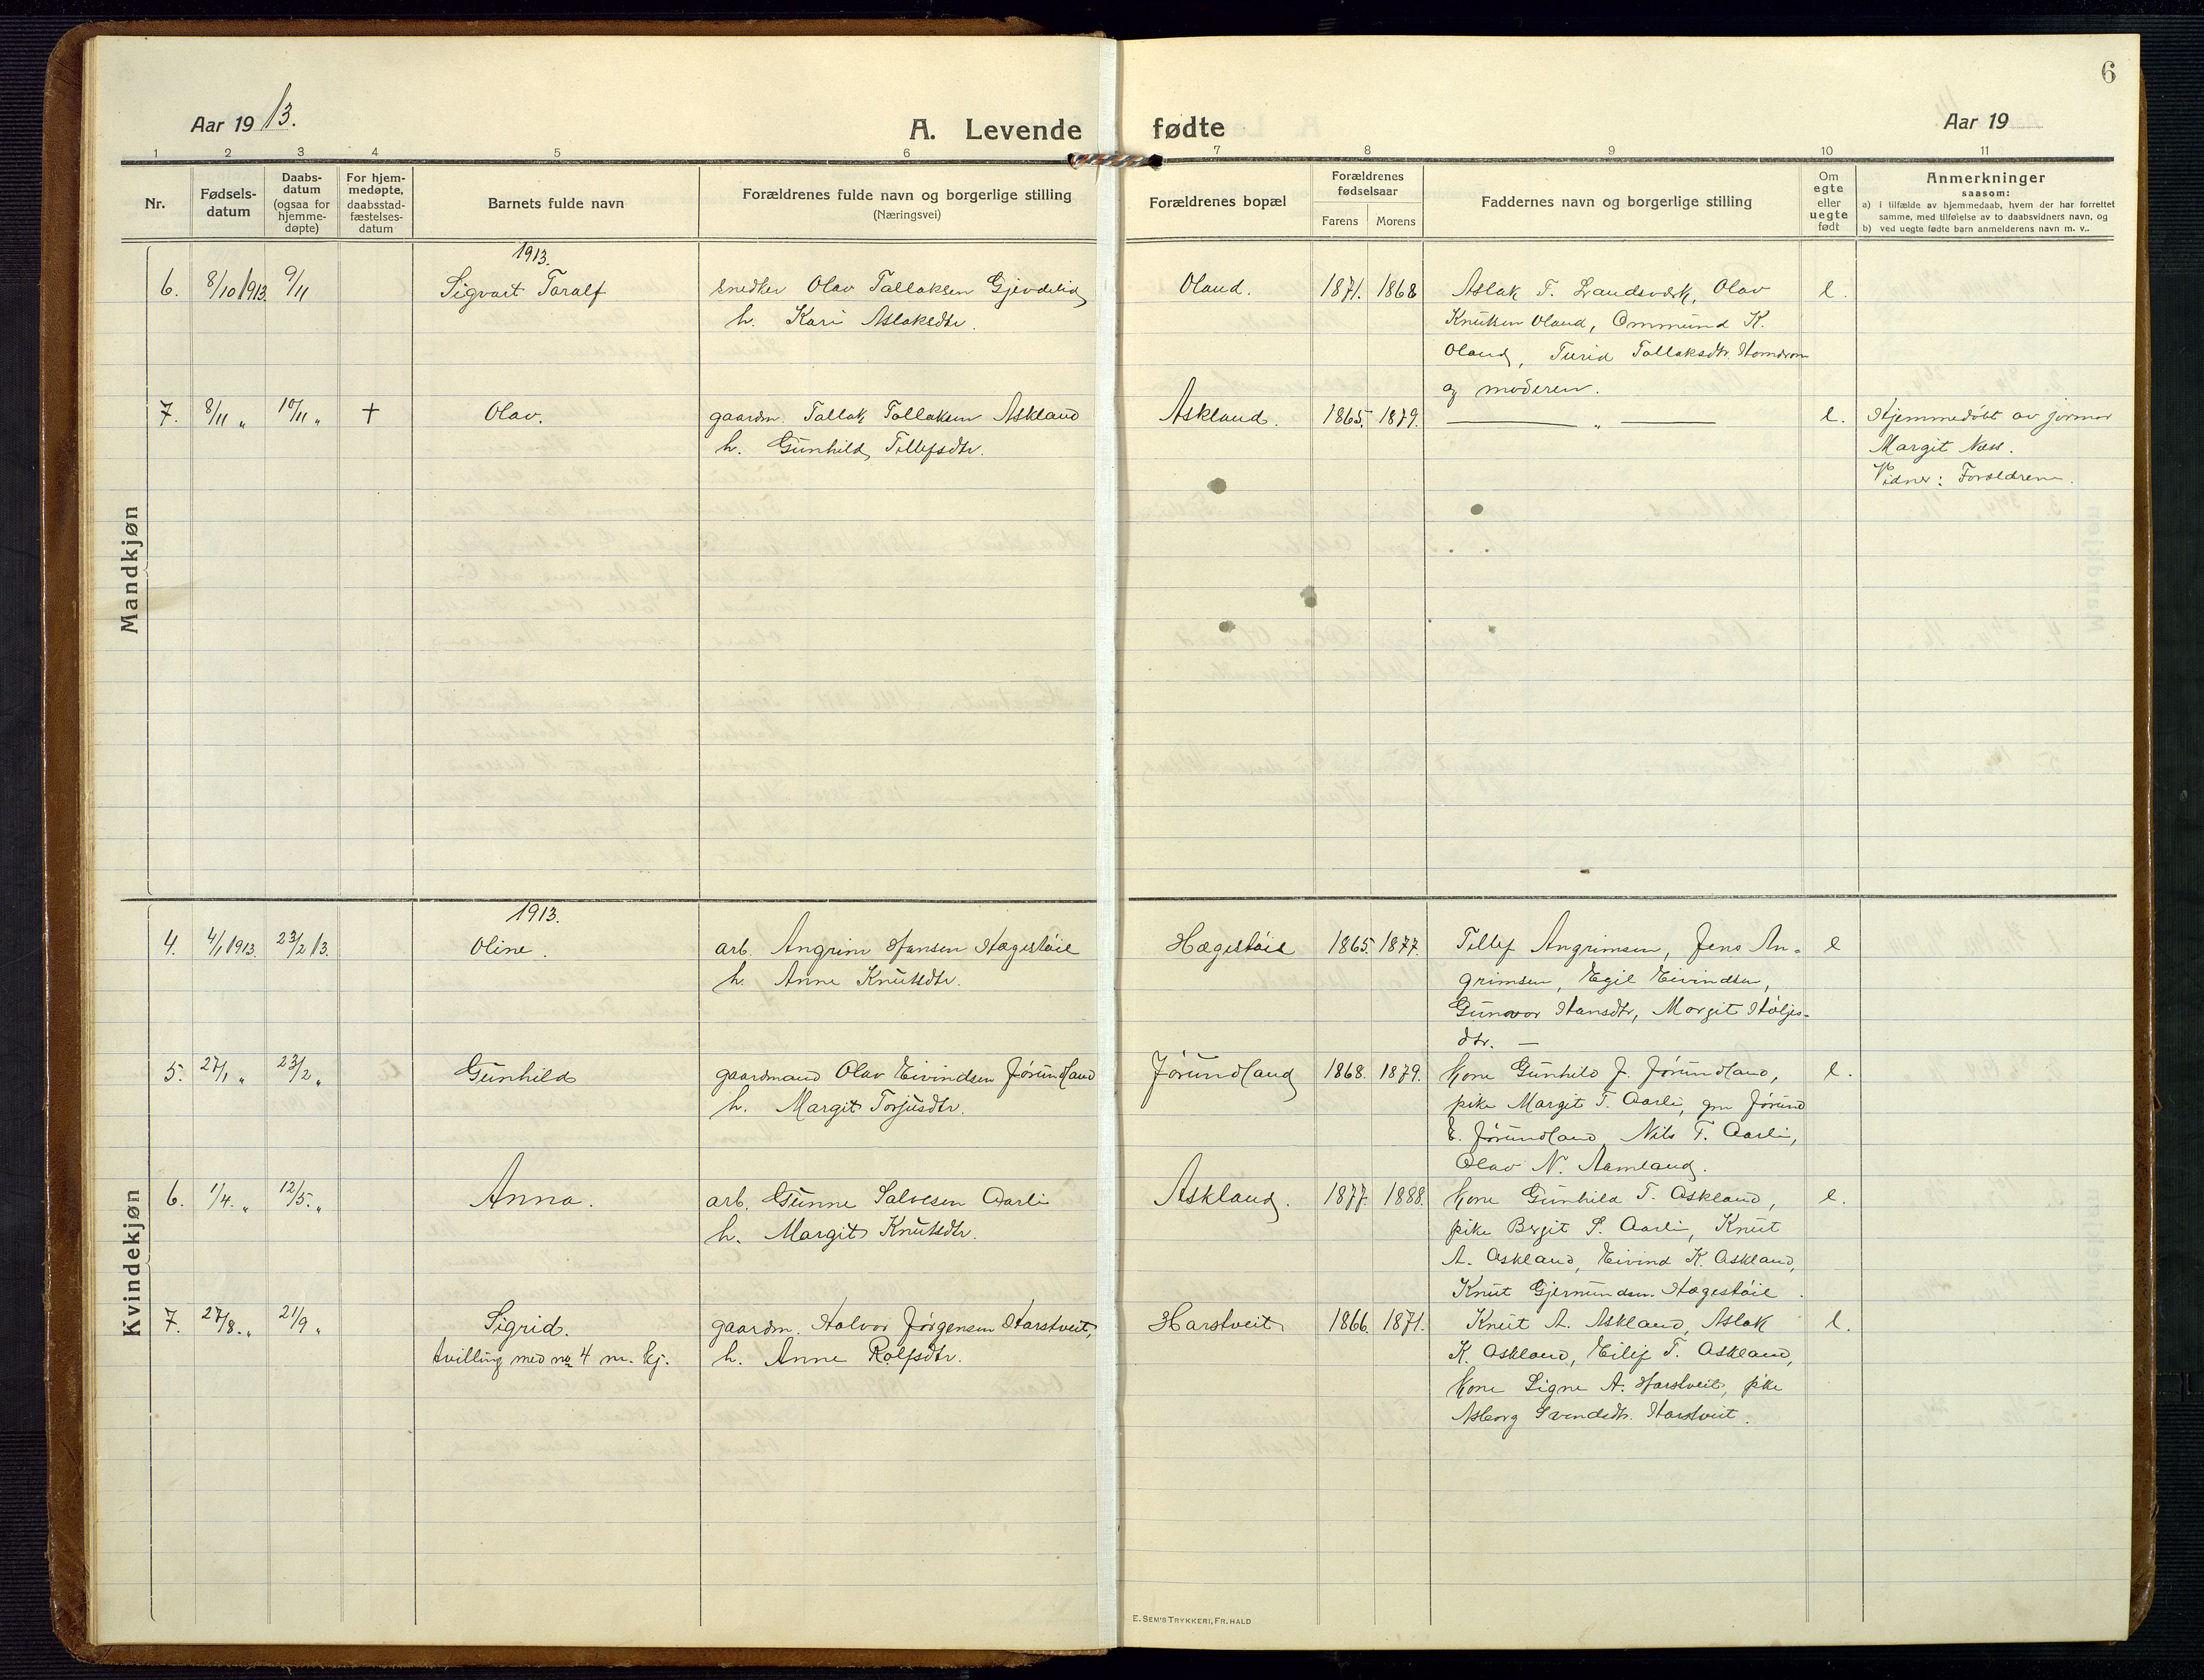 6
Aar 1913.
A. Levende fødte
Aar 19
1 2 3 4 5 6 7 8 9 10 11
Nr.
Fødsels-
datum
Daabs-
datum
(ogsaa for
hjemme-
døpte)
For hjem-
medøpte,
daabsstad-
fæstelses-
datum
Barnets fulde navn
Forældrenes fulde navn og borgerlige stilling
(Næringsvei)
Forældrenes bopæl
Forældrenes
fødselsaar
Farens Morens
Faddernes navn og borgerlige stilling
Om
egte
eller
uegte
født
Anmerkninger
saasom:
a) i tilfælde av hjemmedaab, hvem der har forrettet
samme, med tilføielse av to daabsvidners navn, og
b) ved uegte fødte barn anmelderens navn m. v..
Mandkjøn
1913.
6. 8/10 1913. 9/11 Sigvart Taralf snedker Olav Tallaksen Gjevdelid Oland. 1871. 1868 Aslak T. Landsværk, Olav l.
h. Kari Aslaksdtr. Knutsen Oland, Ommund K.
Oland, Turid Tallaksdtr. Homdrom
og moderen.
7. 8/11 „ 10/11 „ † Olav. gaardm. Tallak Tallaksen Askland Askland. 1865. 1879. — „ — l. Hjemmedøbt av jormor
h. Gunhild Tellefsdtr. Margit Næss.
Vidner: Forældrene.
Kvindekjøn
1913.
4. 4/1 1913. 23/2 13. Oline. arb. Angrim Hansen Hægestøil Hægestøil 1865. 1877. Tellef Angrimsen, Jens An- l
h. Anne Knutsdtr. grimsen, Egil Eivindsen,
Gunvor Hansdtr, Margit Høljes-
dtr. —
5. 27/1 „ 23/2 „ Gunhild gaardmand Olav Eivindsen Jørundland Jørundland 1868. 1879. kone Gunhild J. Jørundland, l.
h. Margit Torjusdtr. pike Margit T. Aarli, gm Jørund
E. Jørundland, Nils T. Aarli,
Olav N. Aamland.
6. 1/4. „ 12/5. „ Anna. arb. Gunne Salvesen Aarli Askland. 1877. 1888. kone Gunhild T. Askland, l.
h. Margit Knutsdtr. pike Bergit S. Aarli, Knut
A. Askland, Eivind K. Askland,
Knut Gjermundsen Hægestøil.
7. 27/8. „ 21/9 „ Sigrid. gaardm. Halvor Jørgensen Harstveit, Harstveit 1866. 1871. Knut A. Askland, Aslak l.
tvilling med no 4 m. kj. h. Anne Rolfsdtr. K. Askland, Eilif T. Askland,
kone Signe A. Harstveit, pike
Asborg Svendsdtr. Harstveit.
E. SEM'S TRYKKERI, FR. HALD